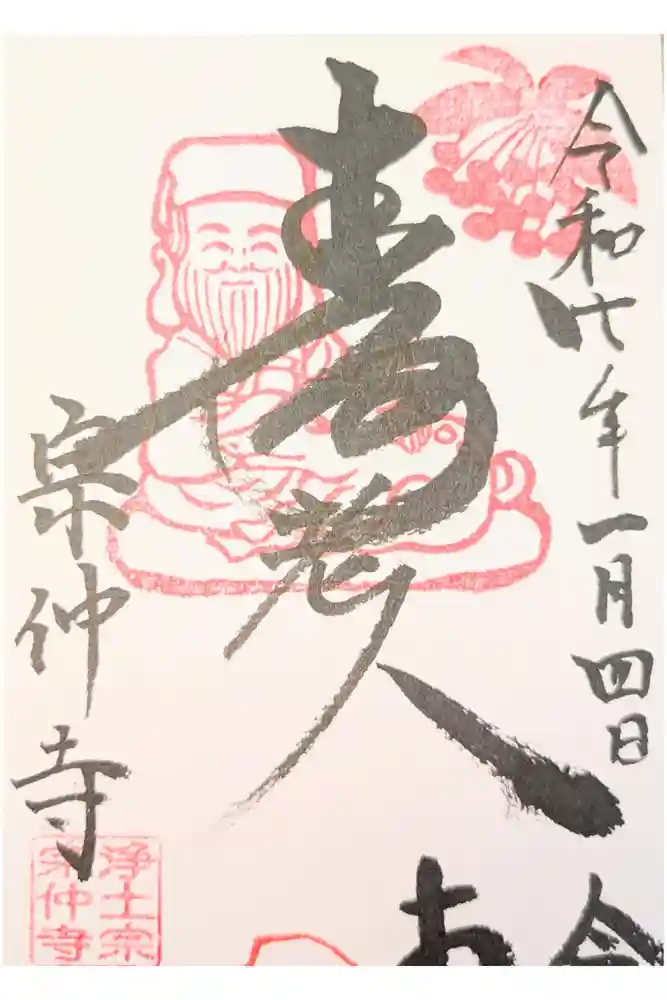 令和 年一月四日
壽老人
宗仲寺
浄土宗
宗仲寺